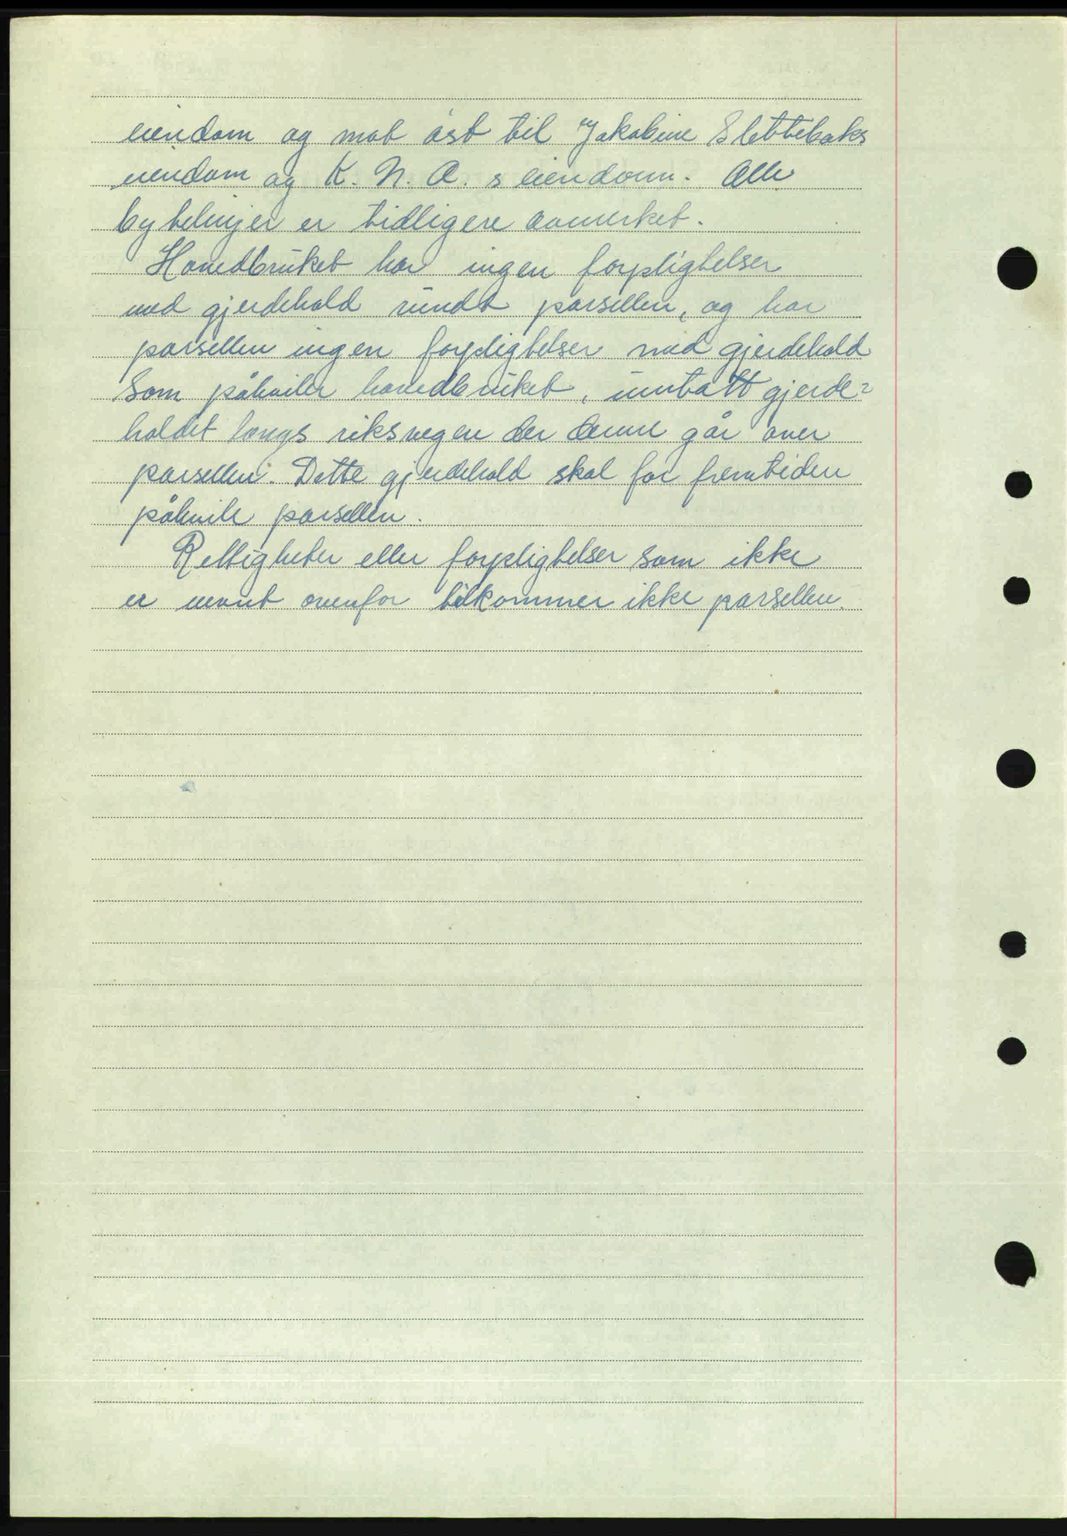 eiendom og mot øst til Jakobine Slettebaks
eiendom og K. N. A. s eiendom. Alle
bytelinjer er tidligere avmerket.
Hovedbruket har ingen forpligtelser
med gjerdehold rundt parsellen, og har
parsellen ingen forpligtelser med gjerdehold
som påhviler hovedbruket, untatt gjerde=
holdet langs riksvegen der denne går over
parsellen. Dette gjerdehold skal for fremtiden
påhvile parsellen.
Rettigheter eller forpligtelser som ikke
er nevnt ovenfor tilkommer ikke parsellen.